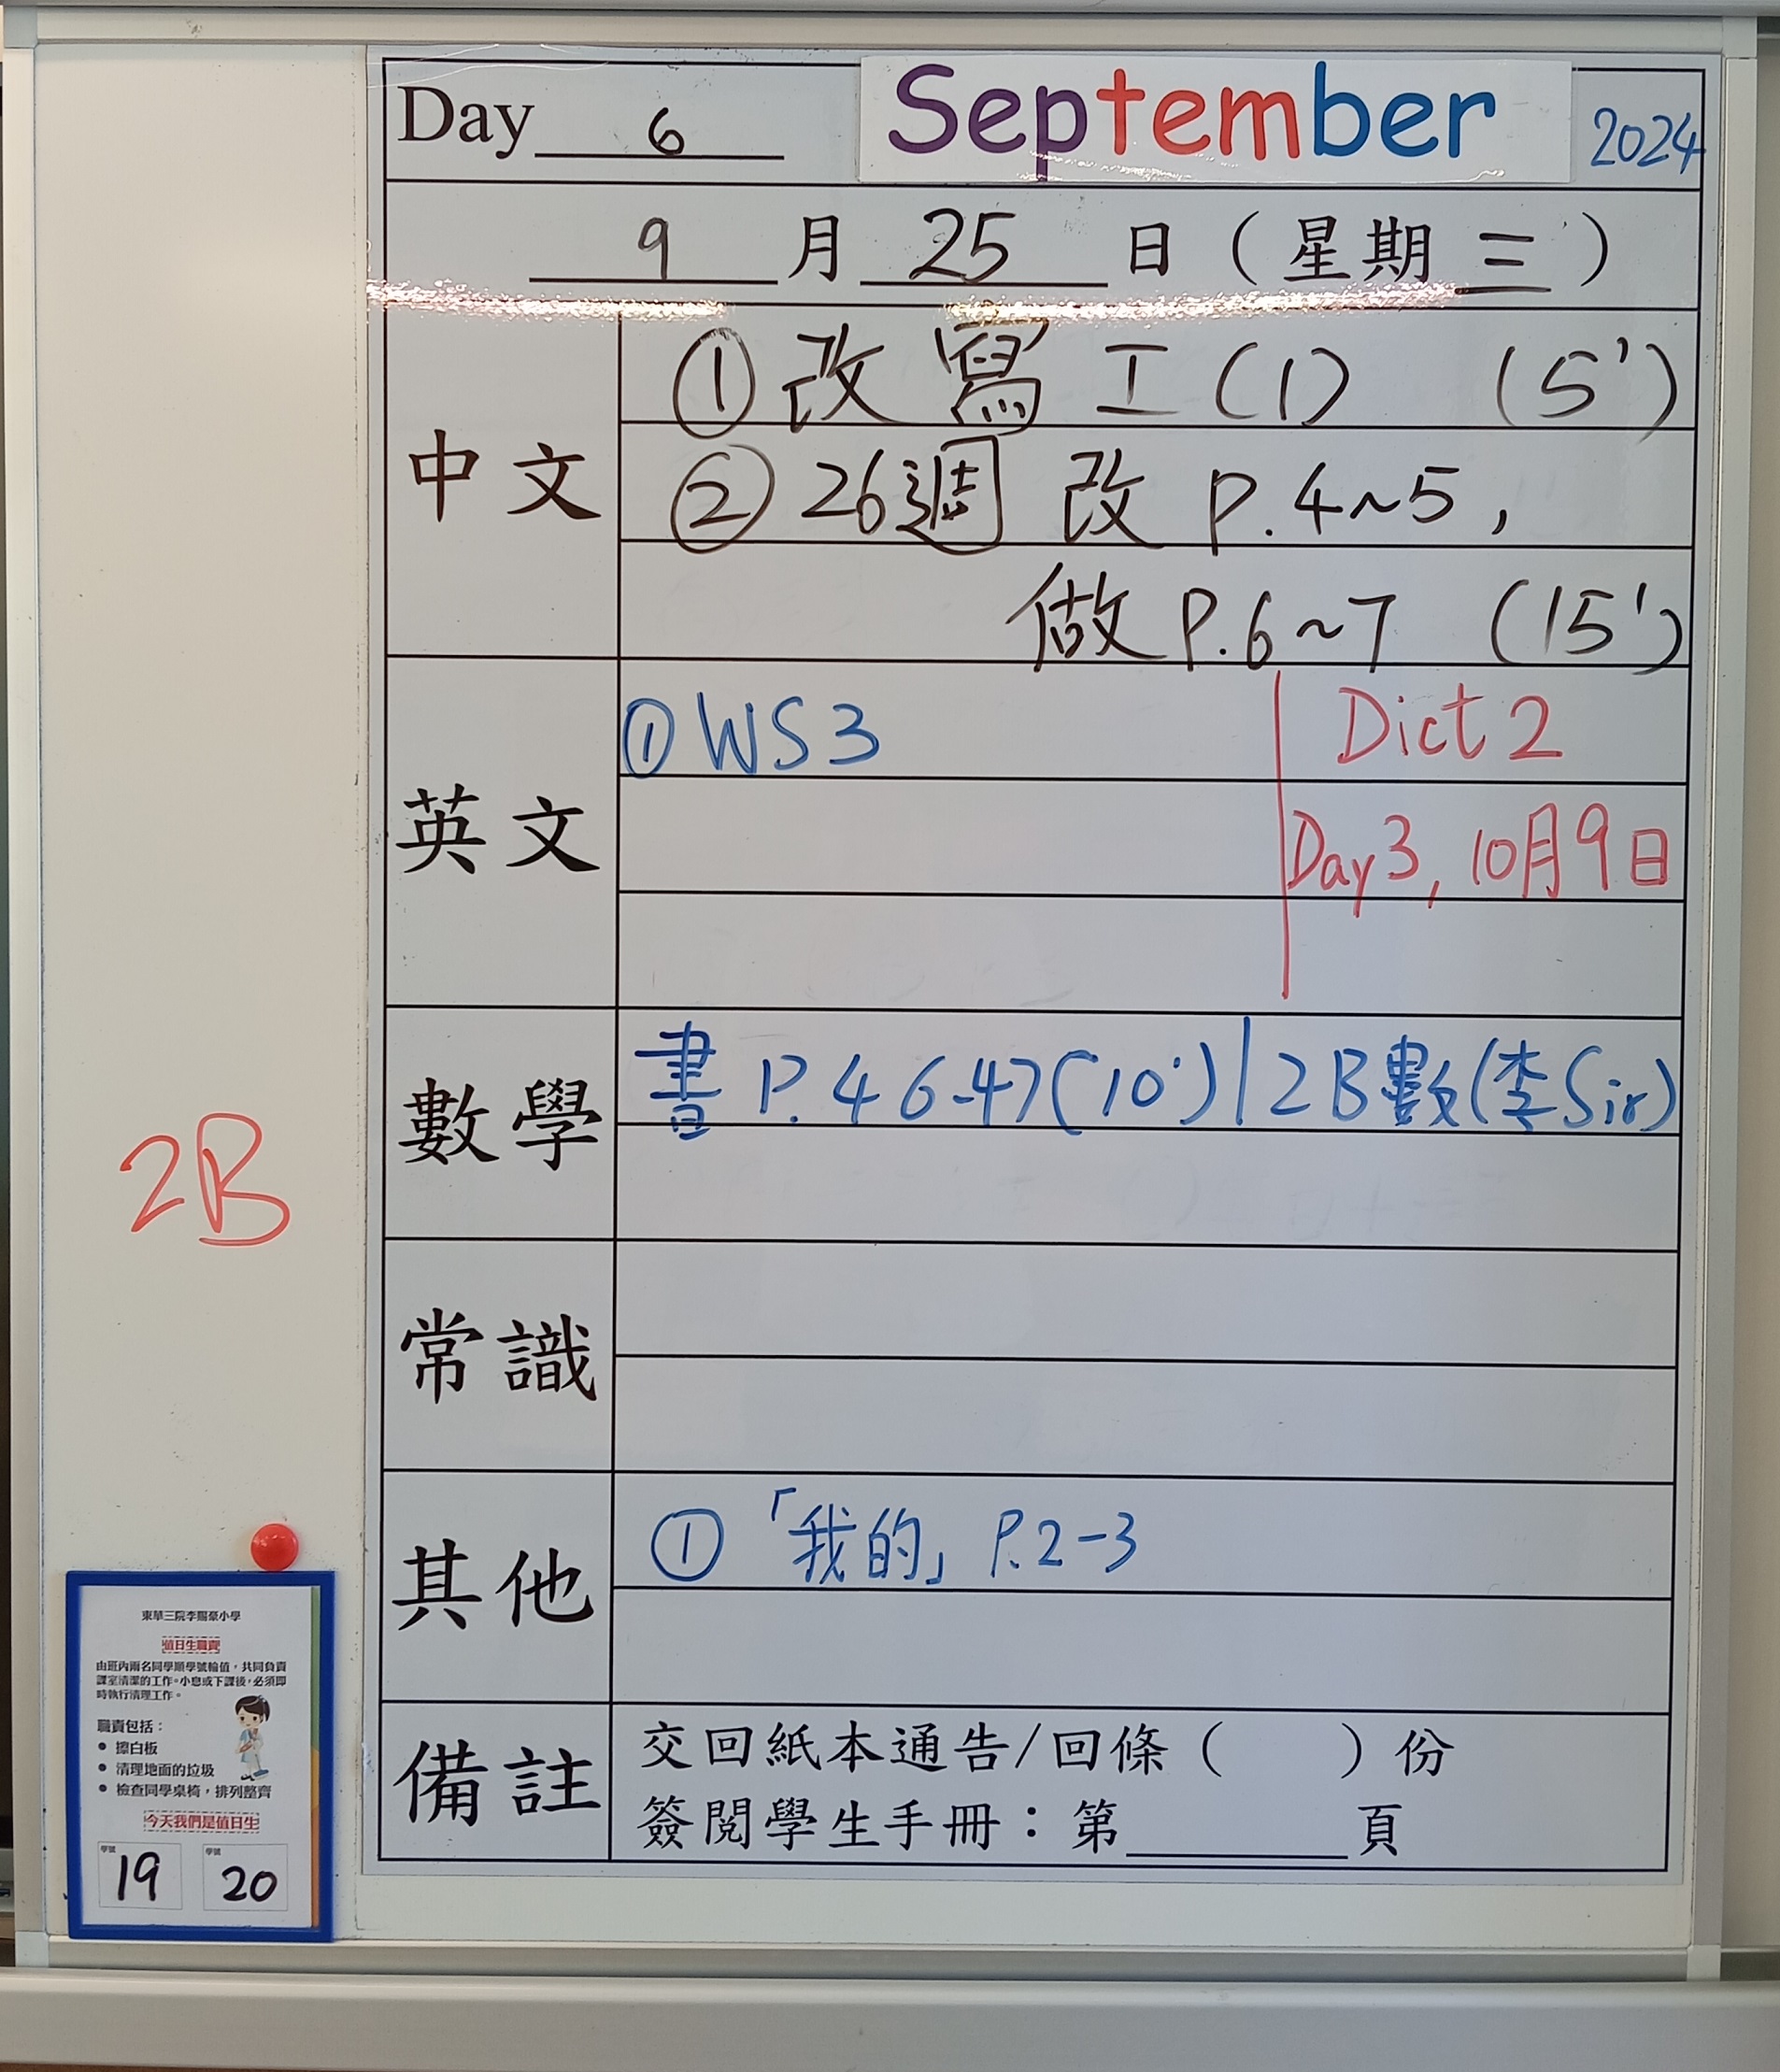 Day 6 September 2024
9 月 25 日（星期三）
中文
① 改 寫工(1) (5')
② 26週 改 P.4~5，
做 P.6~7 (15')
英文
① WS3
Dict 2
Day 3, 10月9日
數學
書 P.46-47(10') | 2B數(李Sir)
常識
其他
① 「我的」P.2-3
備註
交回紙本通告/回條（ ）份
簽閱學生手冊：第______頁
2B
東華三院李賜豪小學
值日生職責
由班內兩名同學順學號輪值，共同負責
課室清潔的工作。小息或下課後，必須即
時執行清理工作。
職責包括：
• 擦白板
• 清理地面的垃圾
• 檢查同學桌椅，排列整齊
今天我們是值日生
學號 19 學號 20